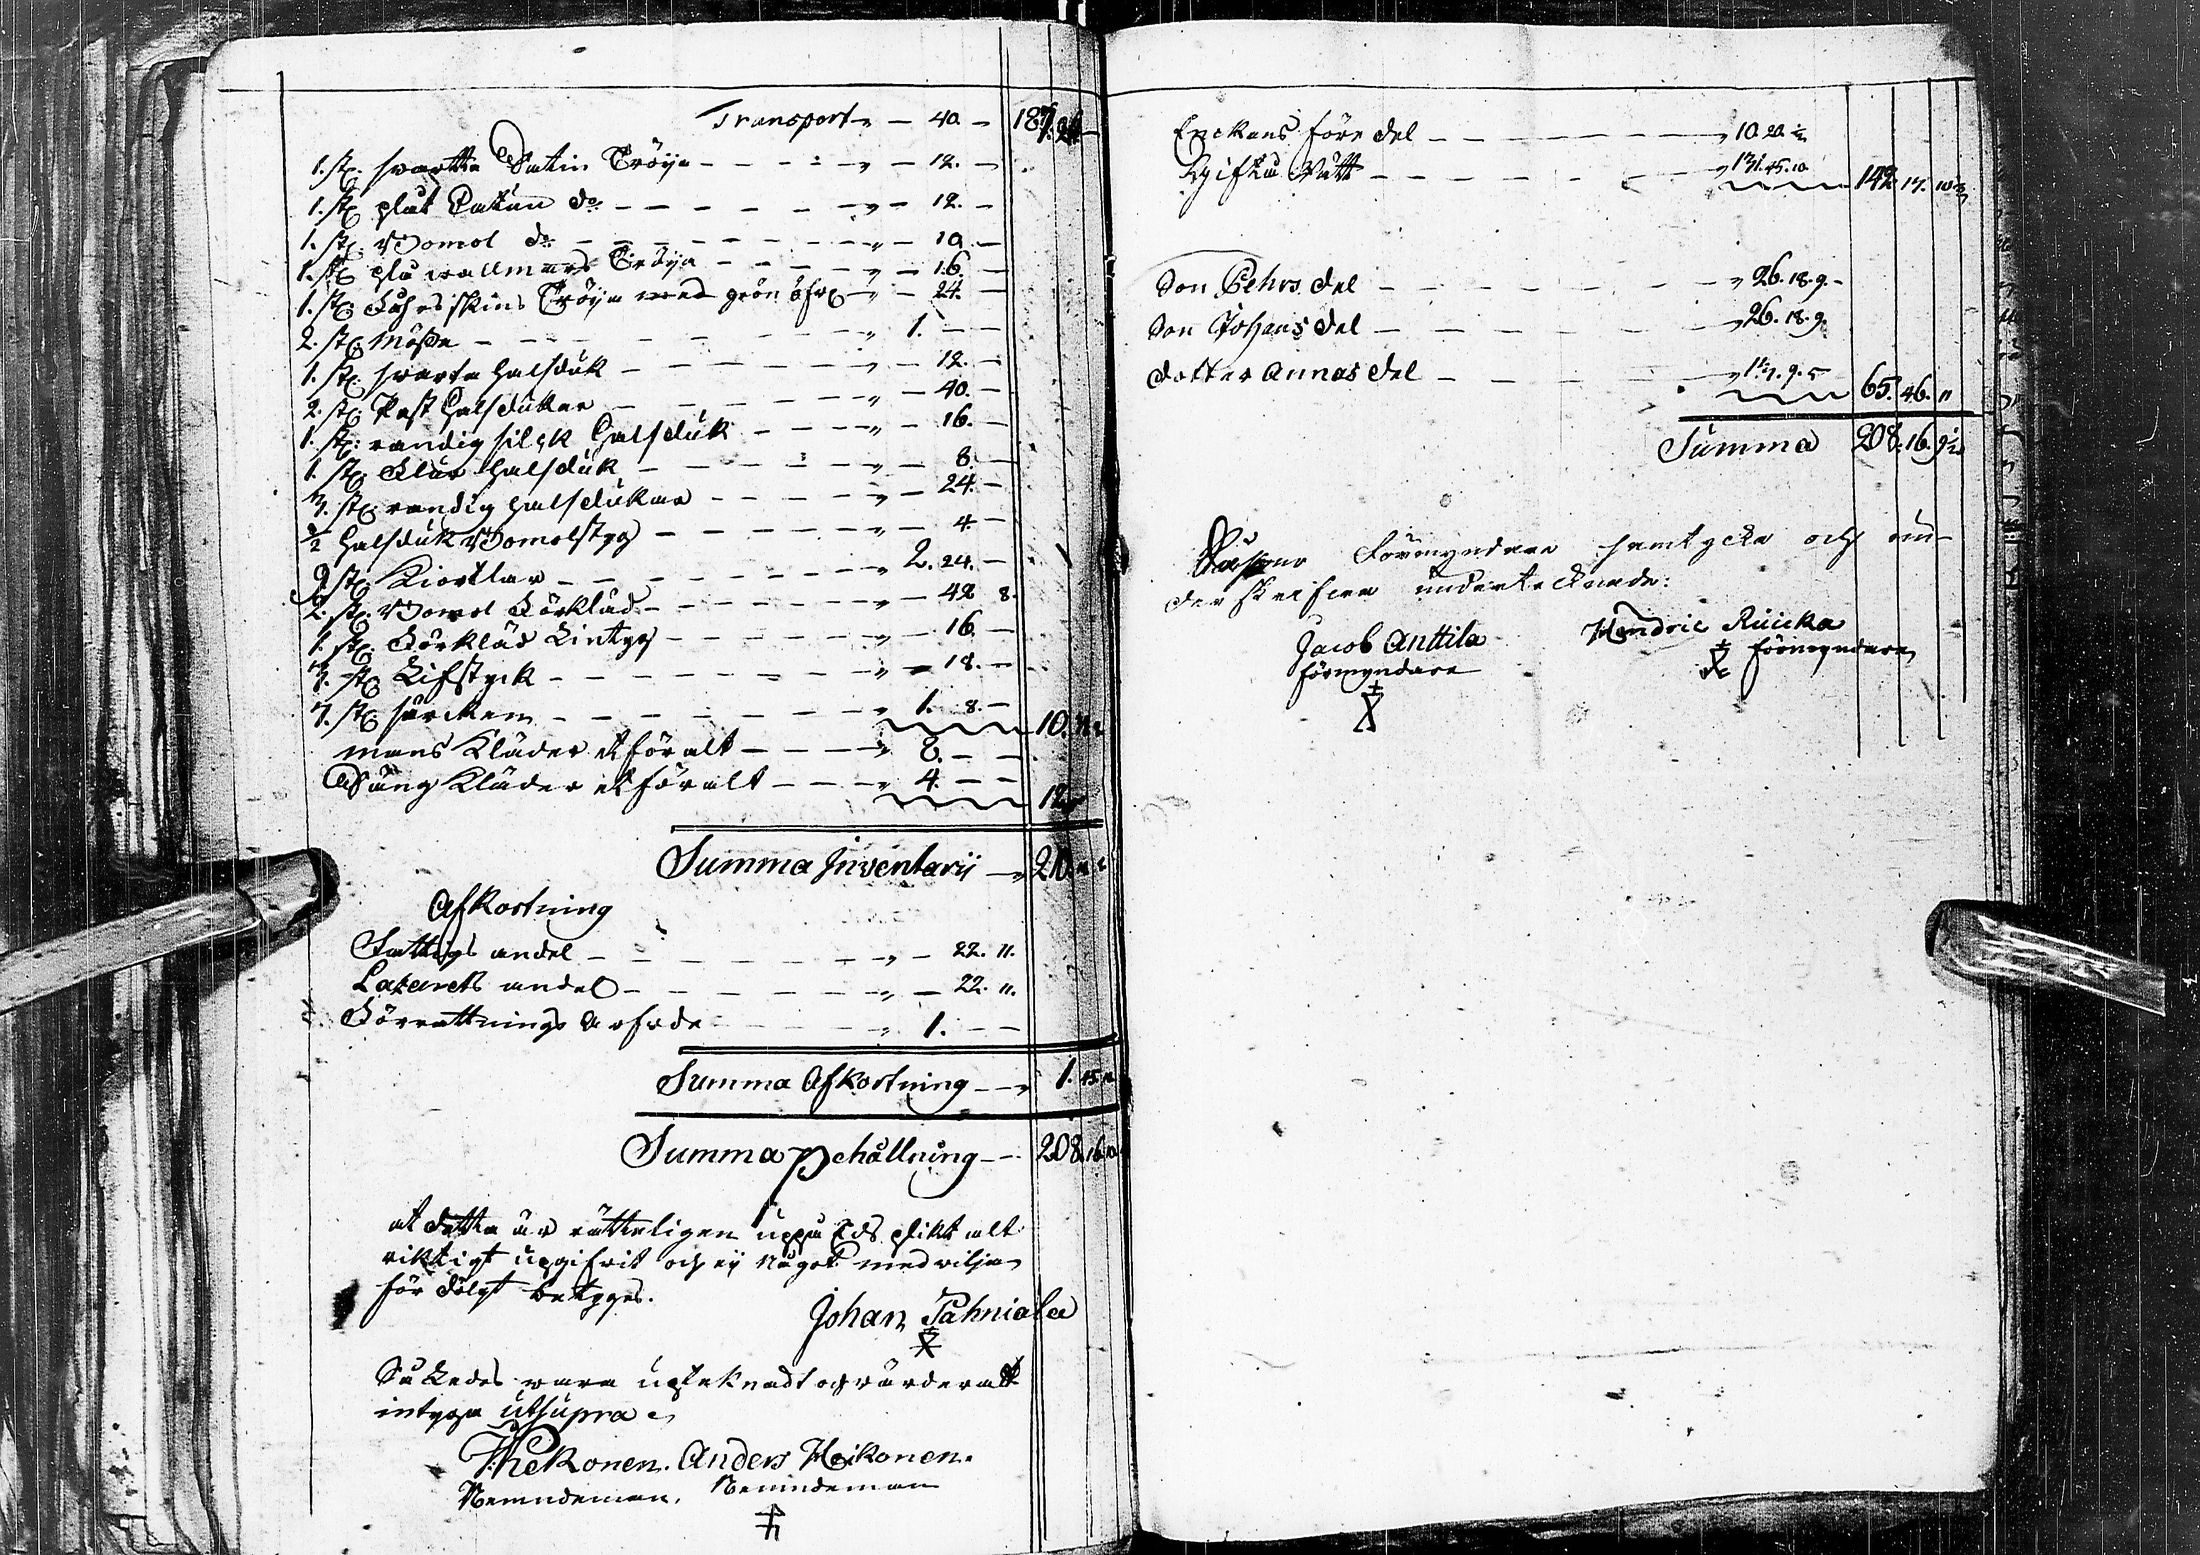 Transport „ — 40. — 187. 24
1. st. swartta Satin Tröija — — — „ — 12. —
1. st. Catun do — — — — „ — 12. —
1. st. Bomol do — — — — „ — 10. —
1. st. blå wallmars Tröija — — — „ — 16. —
1. st. skins Tröija med grön öfr „ — 24. —
2. st. Mössa — — — — „ 1. — —
1. st. swarta halsduk — — — — „ — 12. —
2. st. halsdukar — — — — „ — 40. —
1. st. randig silck halsduk — — — „ — 16. —
1. st. Klar halsduk — — — — „ — 8. —
3. st. randig halsdukar — — — „ — 24. —
1/2 halsduk Bomolstyg — — — „ — 4. —
9 st. Kiortlar — — — — „ 2. 24. —
2. st. Bomol Förkläd — — — — „ — 42 8.
1. st. Förkläd Lintyg — — — — „ — 16. —
3. st. Lifstyck — — — — „ — 18. —
7. st. särcken — — — — „ 1. 8. —
10.
mans Kläder et för alt — — — „ 8. — —
Säng Kläder et för alt — — — „ 4. — —
12
Summa Inventarii — „ 210.
Afkortning
Fattigs andel — — — — „ — 22. 11.
Lazarets andel — — — — „ — 22. 11.
Förrättnings Arfvode — — — „ 1. — —
Summa Afkortning — — „ 1. 45.
Summa Behållning — — 208. 16. 10
at detta är rätteligen uppå Eds plikt alt
riktigt upgifvit och ej något med vilja
för dölgt betyges.
Johan Pahniala
Således vara uptecknadt och värderatt
intyga ut supra
Thekonen. Anders Heikonen.
Nemndeman. Nemndeman
Enckans före del — — — — „ 10. 20. 1/2
Gifto Rätt — — — — „ 131. 45. 10
142. 17. 10 1/2
Son Pehrs del — — — — „ 26. 18. 9. —
Son Johans del — — — — „ 26. 18. 9.
dotter Annas del — — — — „ 13. 9. 5
65. 46. 11
Summa 208. 16. 9 1/2
Förmyndare samtycke och un-
derskrifter underteknade:
Jacob Anttila Hendric Ruicka
förmyndare förmyndare